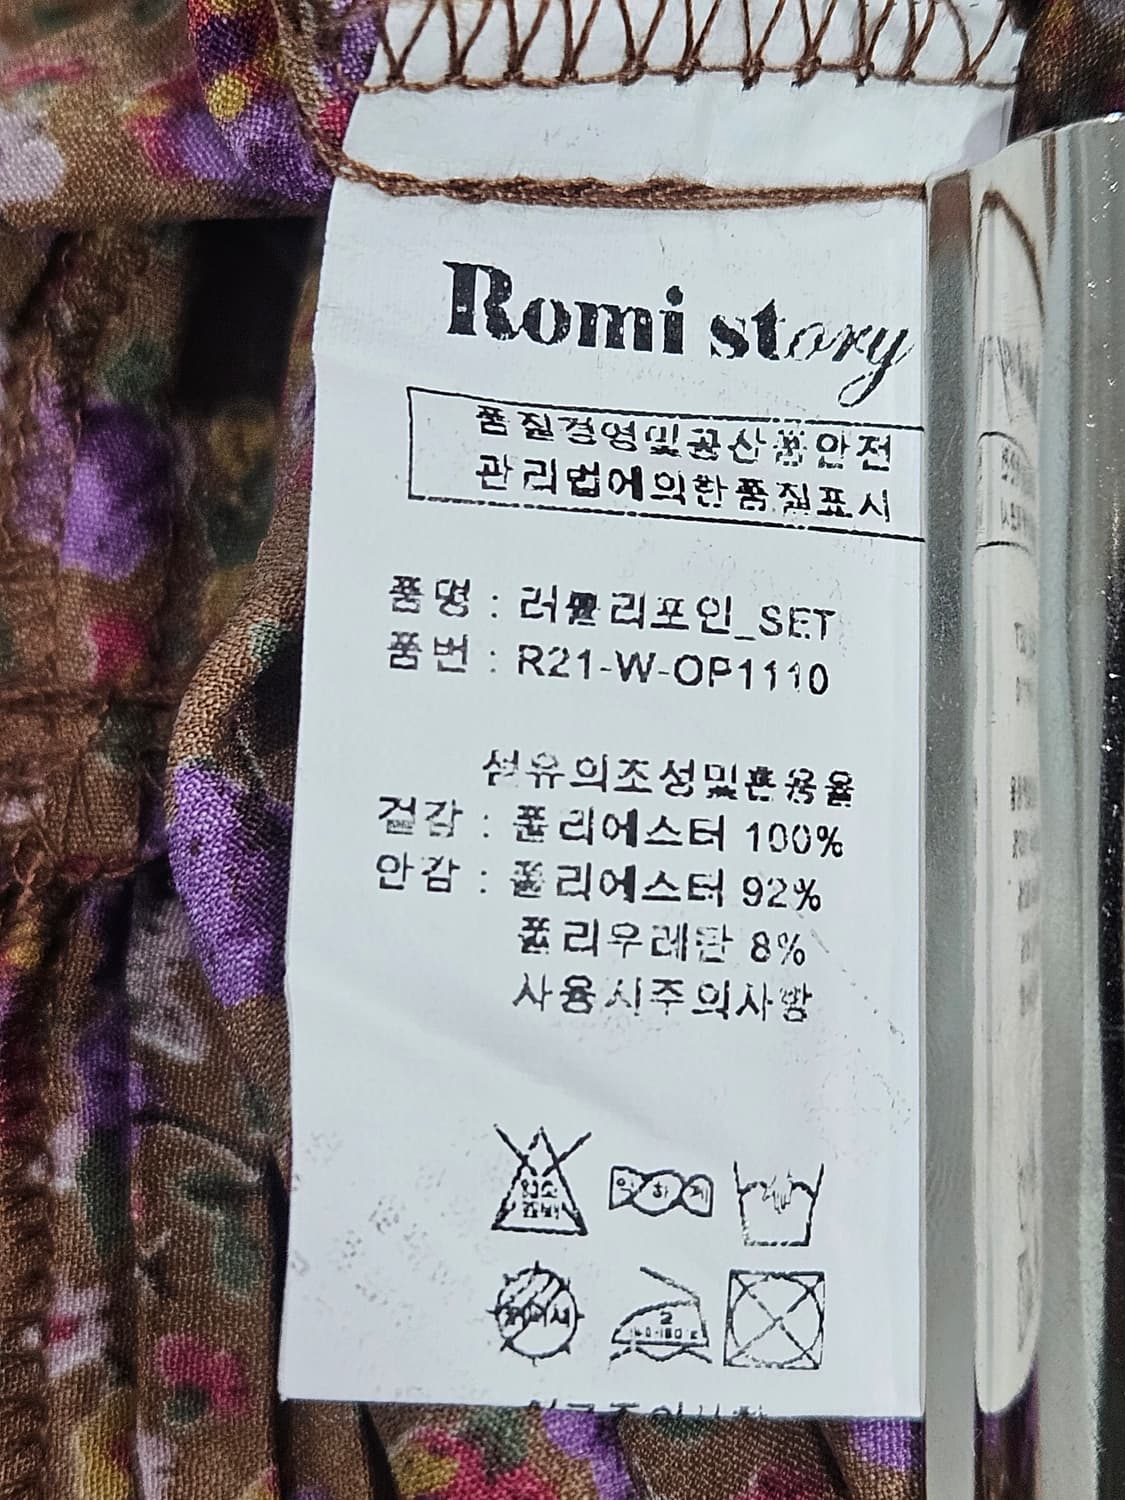 Romi story
품질경영및공산품안전
관리법에의한품질표시
품명 : 러블리포인_SET
품번 : R21-W-OP1110
섬유의조성및혼용율
겉감 : 폴리에스터 100%
안감 : 폴리에스터 92%
폴리우레탄 8%
사용시주의사항
염소
표백
약하게
2